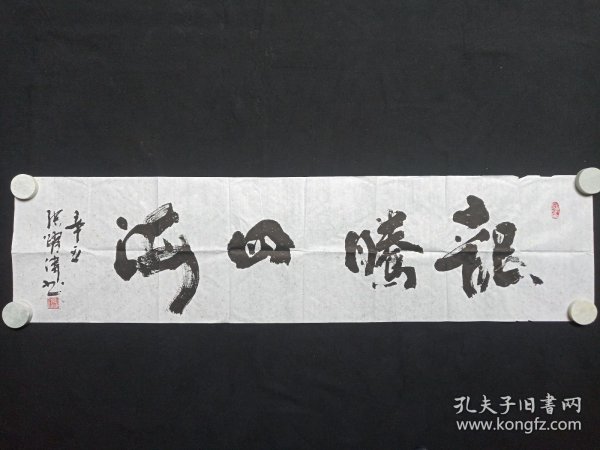 龍騰四海
辛丑
孔夫子旧書网
www.kongfz.com